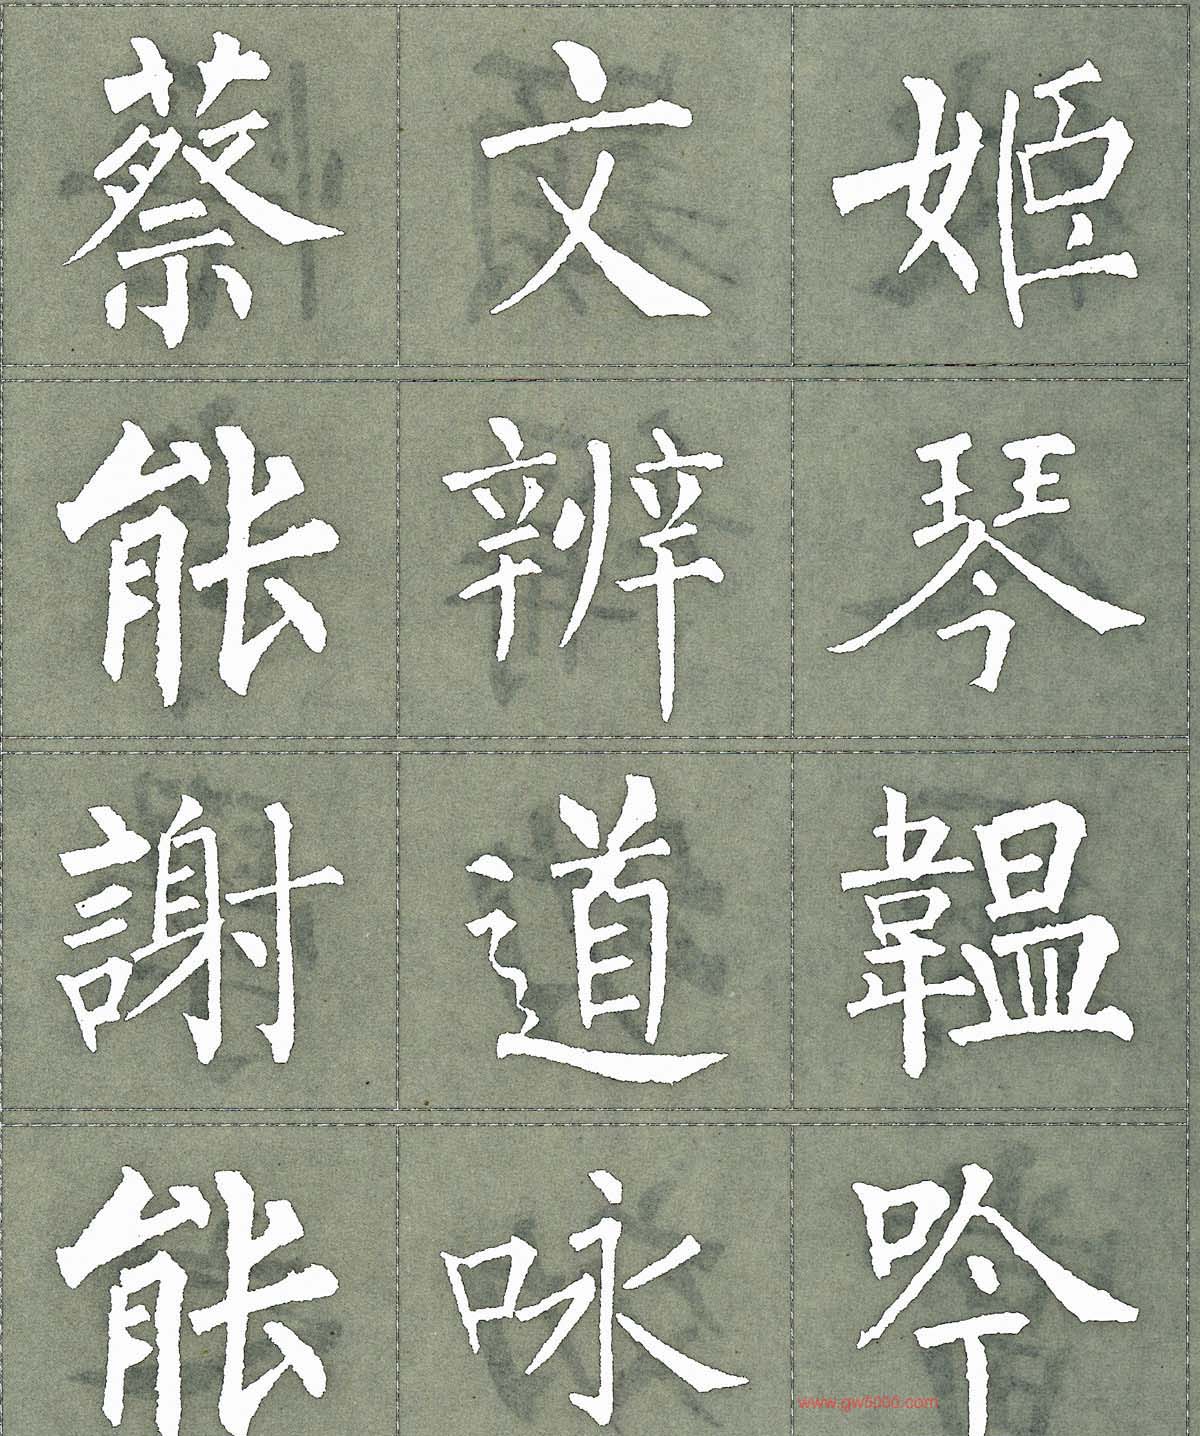 蔡文姬
能辨琴
謝道韞
能咏吟
www.gw5000.com